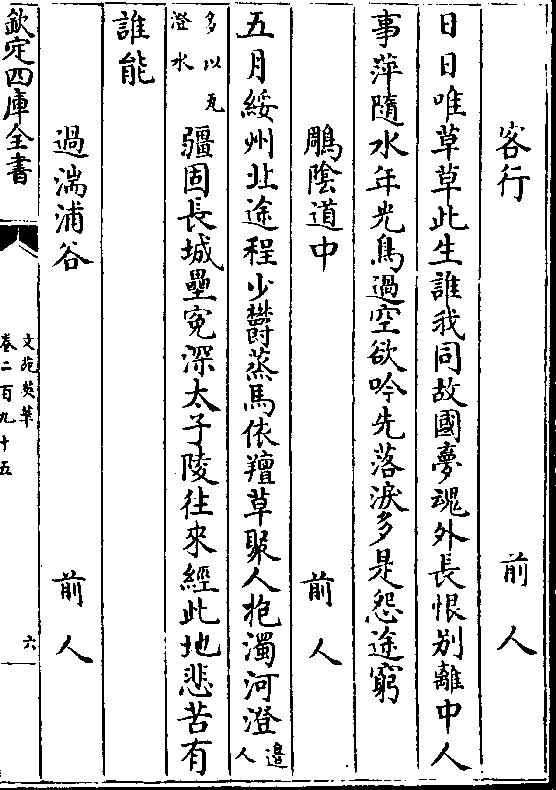 客行　前人
日日唯草草此生誰我同故國夢魂外長恨別離中人
事萍隨水年光鳥過空欲吟先落淚多是怨途窮
鵰陰道中　前人
五月綏州北途程少鬱蒸馬依羶草聚人抱濁河澄邊人
多以瓦澄水疆固長城壘寃深太子陵往來經此地悲苦有
誰能
過湍浦谷　前人
欽定四庫全書
文苑英華
卷二百九十五
六